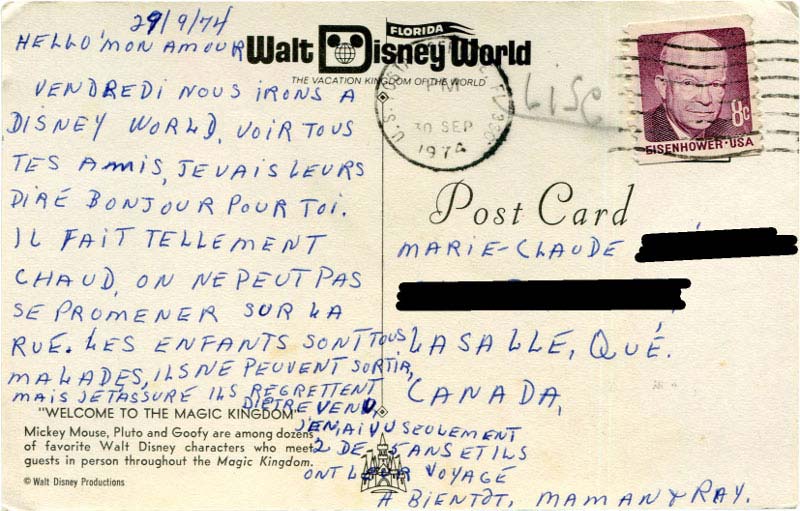 29/9/74
HELLO MON AMOUR
VENDREDI NOUS IRONS A
DISNEY WORLD, VOIR TOUS
TES AMIS, JE VAIS LEURS
DIRÉ BONJOUR POUR TOI.
IL FAIT TELLEMENT
CHAUD, ON NE PEUT PAS
SE PROMENER SUR LA
RUE. LES ENFANTS SONT TOUS
MALADES, ILS NE PEUVENT SORTIR,
MAIS JE T'ASSURE ILS REGRETTENT
D'ÊTRE VENU,
J'EN, AI VU SEULEMENT
2 DE 5 ANS ET ILS
ONT VOYAGÉ
A BIENTÔT, MAMAN & RAY.
"WELCOME TO THE MAGIC KINGDOM"
Mickey Mouse, Pluto and Goofy are among dozens
of favorite Walt Disney characters who meet
guests in person throughout the Magic Kingdom.
© Walt Disney Productions
FLORIDA
Walt Disney World
THE VACATION KINGDOM OF THE WORLD
U.S.
PM
30 SEP
1974
8c
EISENHOWER·USA
Post Card
MARIE-CLAUDE
LASALLE, QUÉ.
CANADA,